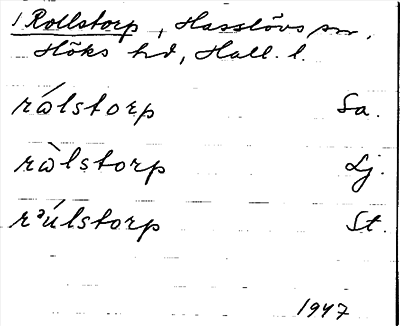 1 Rollstorp, Hasslövs sn,
Höks hd, Hall. l.
rɷ́lstorp Sa.
rɷ̀lstorp Lj.
rᵊúlstorp St.
1947